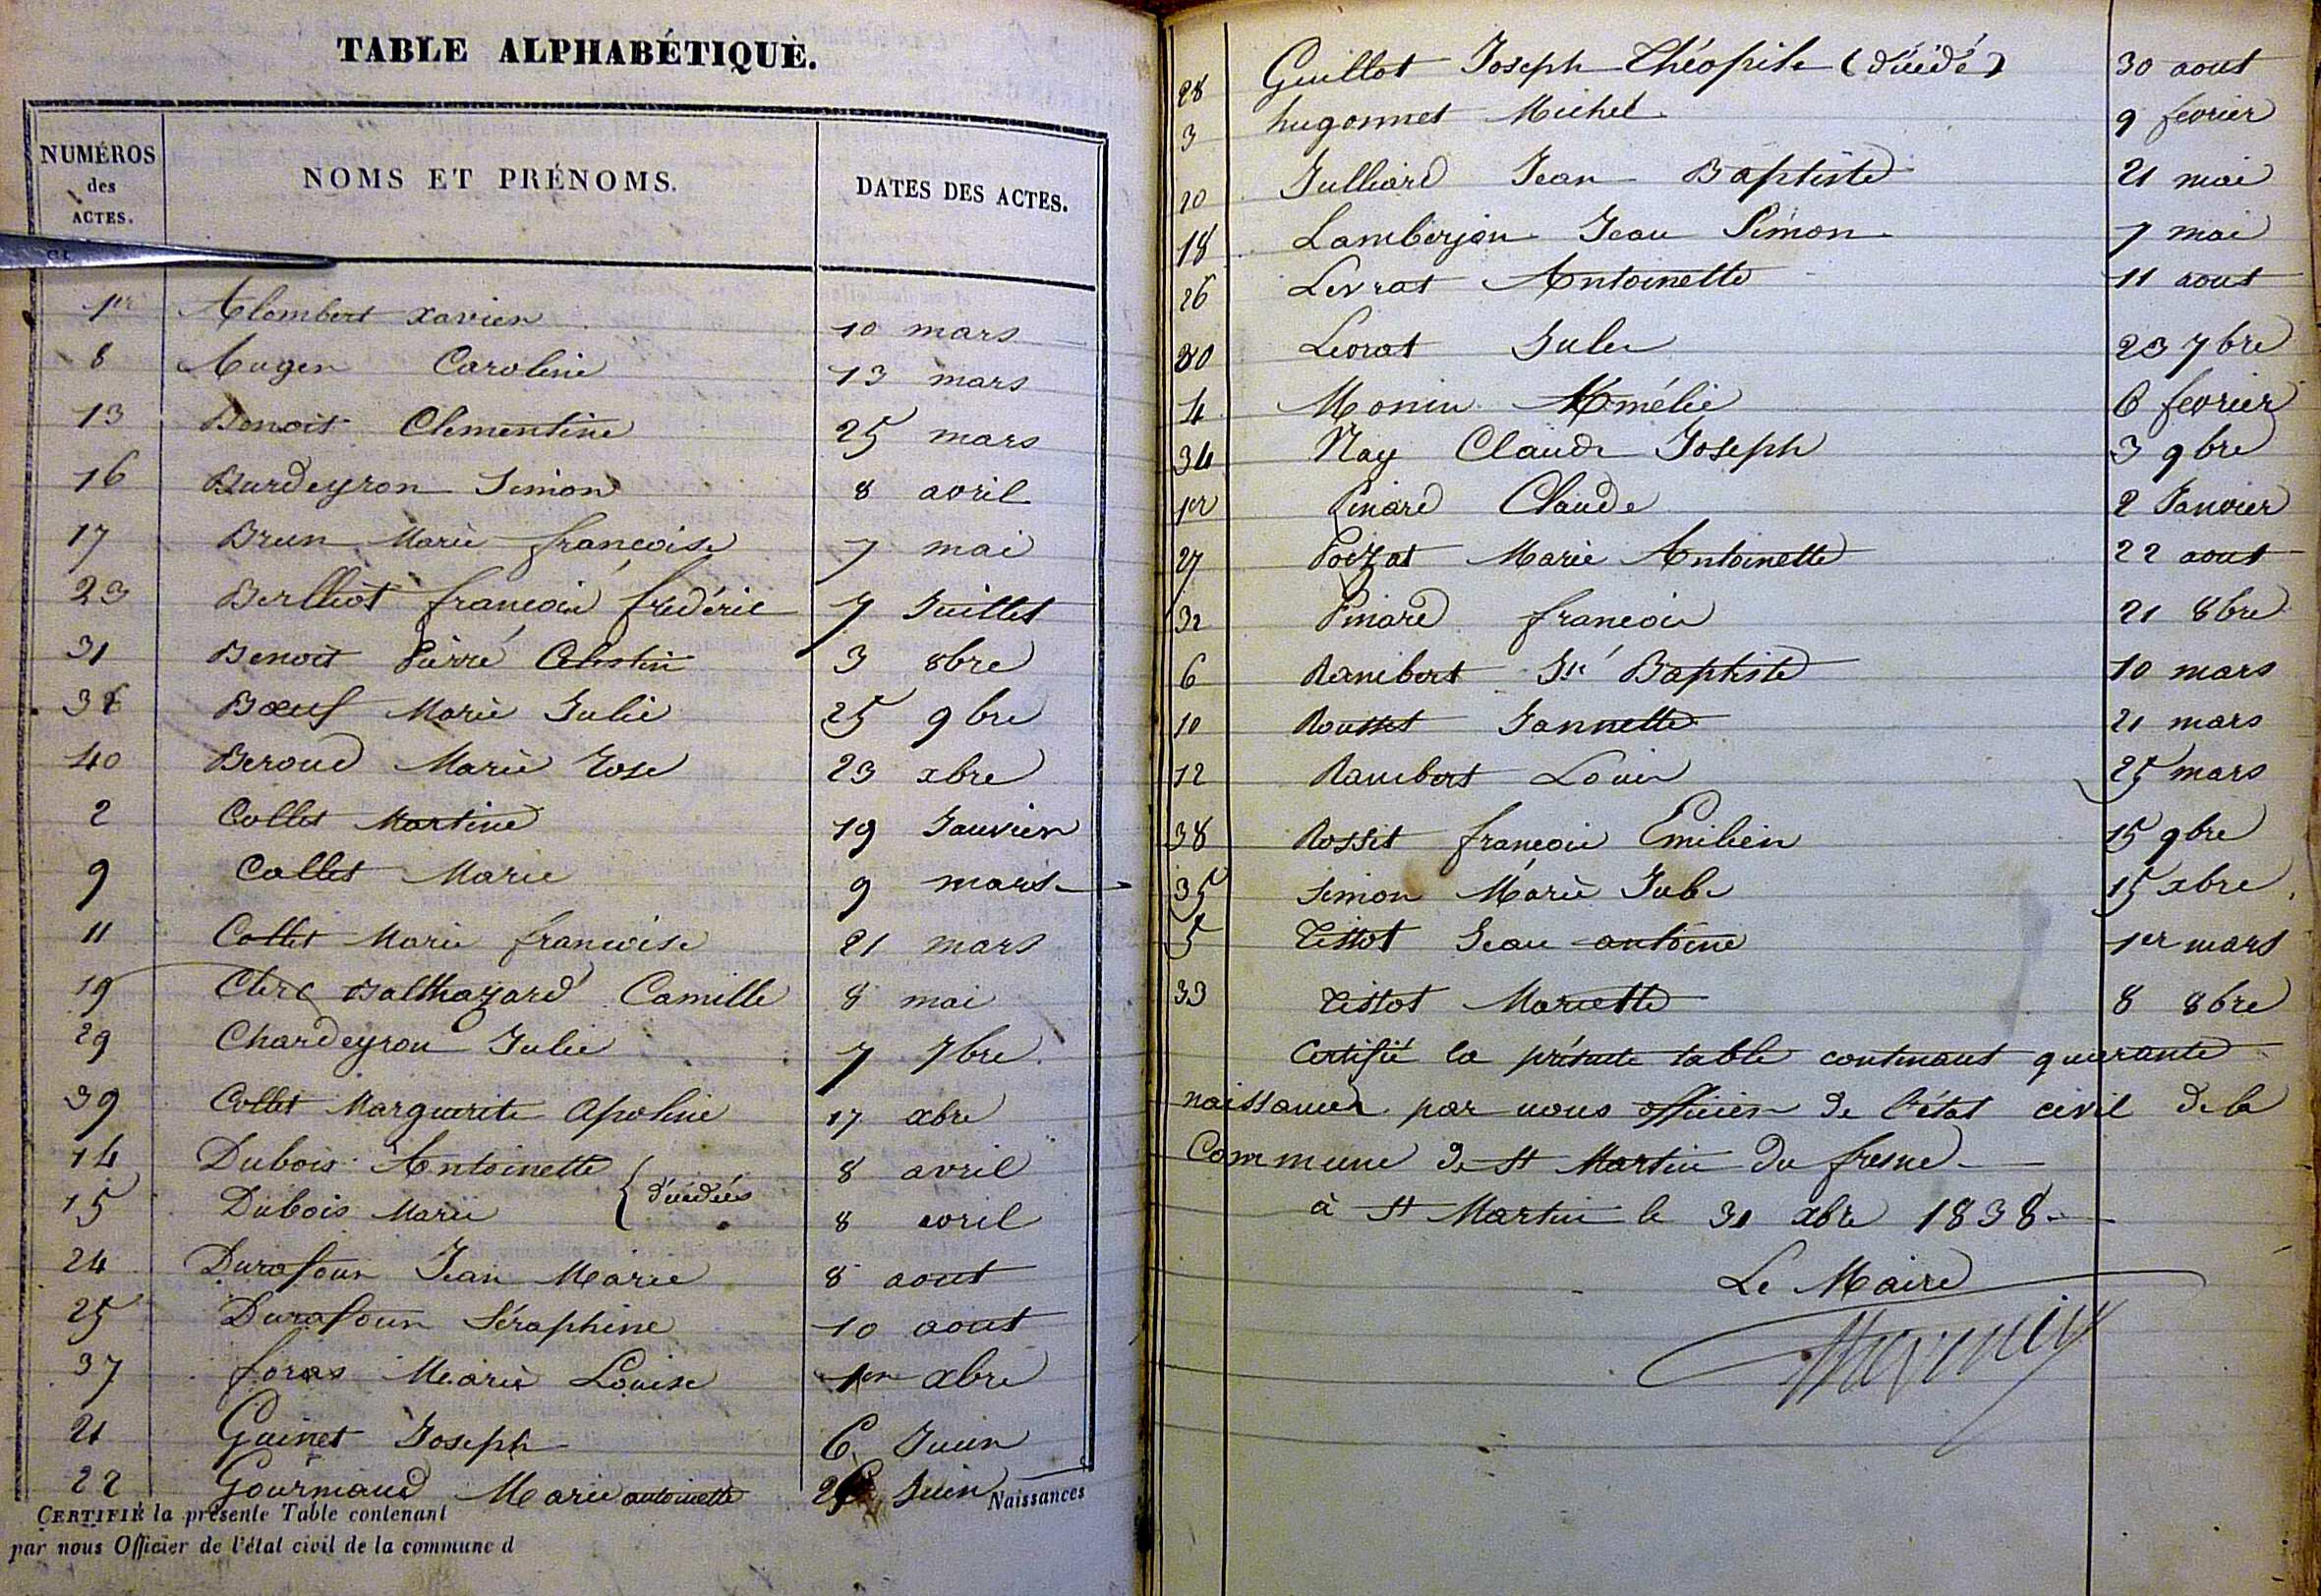 TABLE ALPHABÉTIQUE.
NUMÉROS des ACTES. NOMS ET PRÉNOMS. DATES DES ACTES.
1er Alombert xavier 10 mars
8 Auger Caroline 13 mars
13 Benoit Clementine 25 mars
16 Burdeyron Simon 8 avril
17 Brun Marie francoise 7 mai
23 Berlliot francois frédéric 7 Juillet
31 Benoit Pierre Celestin 3 8bre
36 Bœuf Marie Julie 25 9bre
40 Beroud Marie Rose 23 xbre
2 Collet Martine 19 Janvier
9 Collet Marie 9 mars
11 Collet Marie francoise 21 mars
19 Clerc Balthazard Camille 8 mai
29 Chardeyron Julie 7 7bre
39 Collet Marguerite Apoline 17 xbre
14 Dubois Antoinette 8 avril
15 Dubois Marie { décédées 8 avril
24 Durafour Jean Marie 8 aout
25 Durafour Séraphine 10 aout
37 foras Marie Louise 1er xbre
21 Guinet Joseph 6 Juin
22 Gourmand Marie antoinette Juin
Naissances
CERTIFIÉ la présente Table contenant
par nous Officier de l'état civil de la commune d
28 Guillot Joseph Théophile (décédé) 30 aout
3 hugonnet Michel 9 fevrier
20 Julliard Jean Baptiste 21 mai
18 Lamberjon Jean Simon 7 mai
26 Levrat Antoinette 11 aout
30 Levrat Jules 23 7bre
4 Monin Amélie 6 fevrier
34 Nay Claude Joseph 3 9bre
1er Pinard Claude 2 Janvier
27 Poizat Marie Antoinette 22 aout
32 Pinard francois 21 8bre
6 Rambert Jn Baptiste 10 mars
10 Rousset Jannette 21 mars
12 Rambert Louis 25 mars
38 Rosset francois Emilien 15 9bre
35 Simon Marie Jule 15 xbre
5 Tissot Jean antoine 1er mars
33 Tissot Mariette 8 8bre
Certifié la présente table contenant quarante
naissances par nous officier de l'état civil de la
Commune de St Martin du fresne
à St Martin le 31 xbre 1838
Le Maire